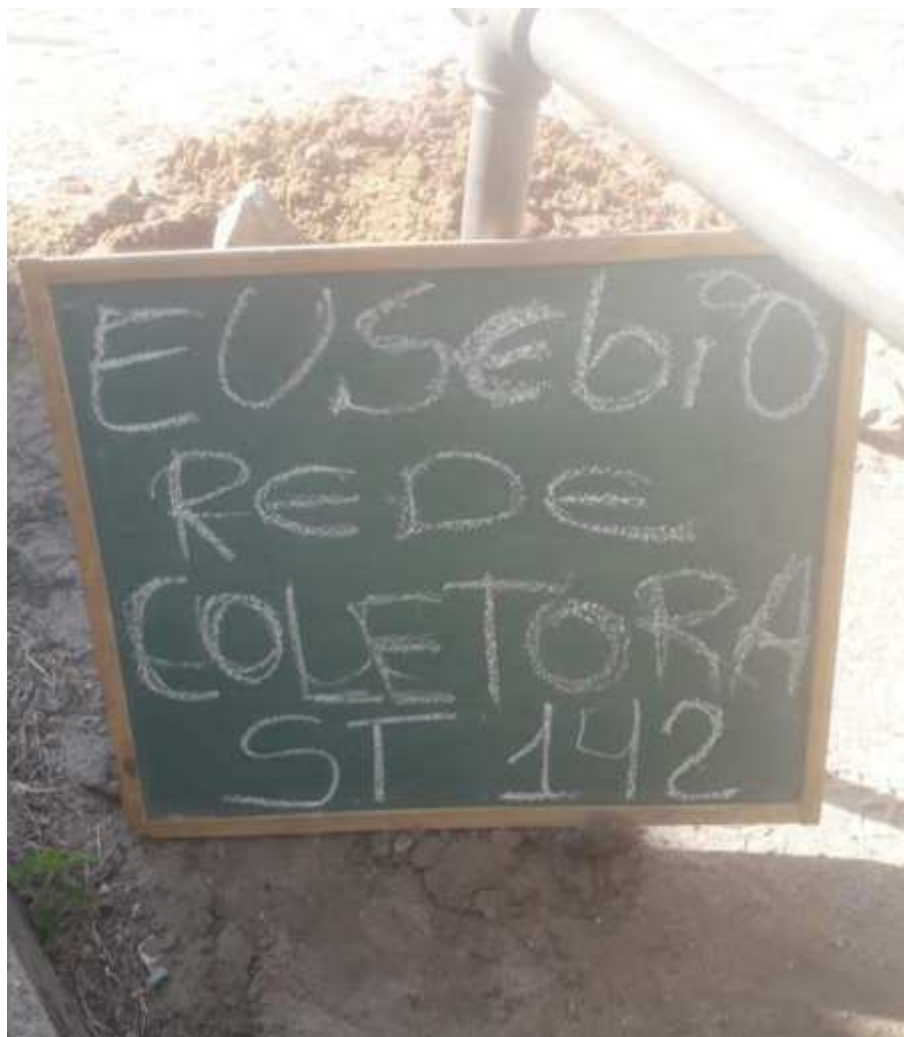 EUSebiO
REDE
COLETORA
ST 142